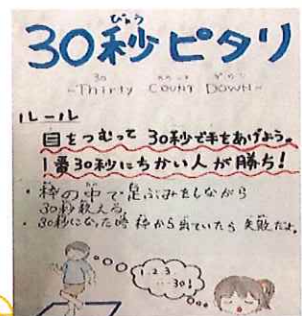 びょう
30秒ピタリ
~Thirty COUNT DOWN~
ルール
目をつむって 30秒で手をあげよう。
1番30秒にちかい人が勝ち!
・枠の中で足ぶみをしながら
30秒数える。
・30秒になった時 枠から出ていたら 失敗だよ。
1.2.3
…30!